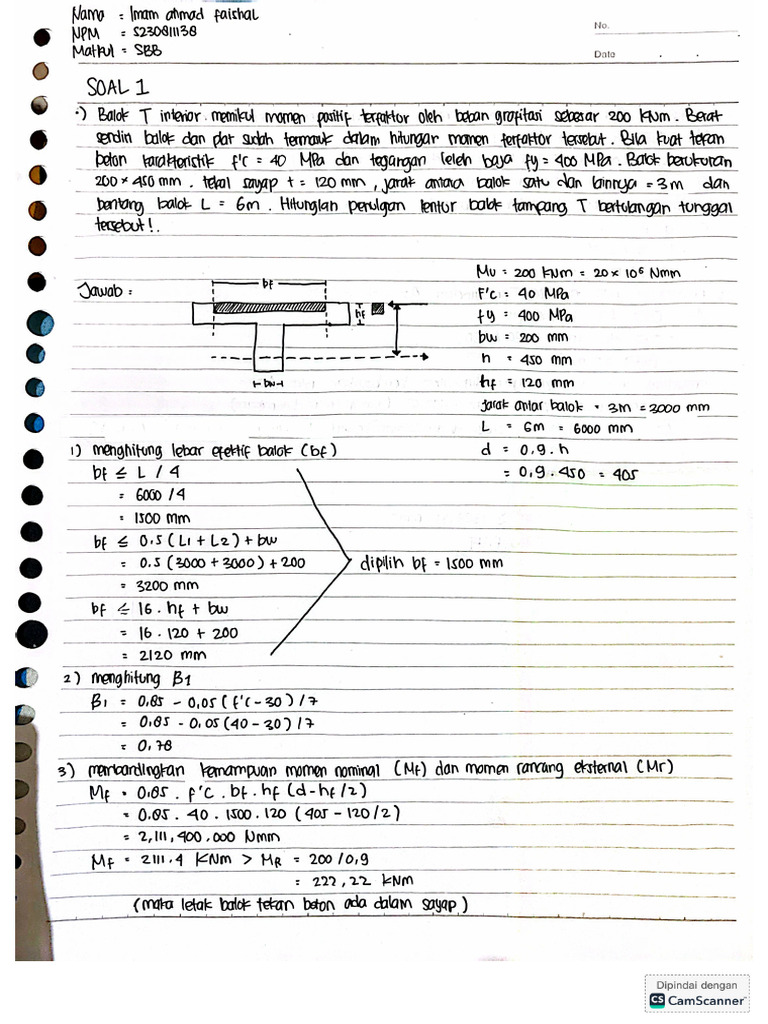 Nama = Imam ahmad faishal
NPM = 5230811138
Matkul = SBB
No.
Date
SOAL 1
•) Balok T interior memikul momen positif terfaktor oleh beban grafitasi sebesar 200 kNm. Berat
sendiri balok dan plat sudah termasuk dalam hitungan momen terfaktor tersebut. Bila kuat tekan
beton karakteristik f'c = 40 MPa dan tegangan leleh baja fy = 400 MPa. Balok berukuran
200 × 450 mm. tebal sayap t = 120 mm, jarak antara balok satu dan lainnya = 3m dan
bentang balok L = 6m. Hitunglah penulgan lentur balok tampang T bertulangan tunggal
tersebut!.
Jawab =
bf
hf
bw
Mu = 200 kNm = 20 × 10⁶ Nmm
F'c = 40 MPa
fy = 400 MPa
bw = 200 mm
h = 450 mm
hf = 120 mm
jarak antar balok = 3m = 3000 mm
L = 6m = 6000 mm
d = 0,9 . h
= 0,9 . 450 = 405
1) menghitung lebar efektif balok (bf)
bf ≤ L / 4
= 6000 / 4
= 1500 mm
bf ≤ 0.5 (L1 + L2) + bw
= 0.5 (3000 + 3000) + 200
= 3200 mm
bf ≤ 16 . hf + bw
= 16 . 120 + 200
= 2120 mm
dipilih bf = 1500 mm
2) menghitung β1
β1 = 0,85 - 0,05 (f'c - 30) / 7
= 0,85 - 0,05 (40 - 30) / 7
= 0,78
3) membandingkan kemampuan momen nominal (Mf) dan momen rancang eksternal (Mr)
Mf = 0,85 . f'c . bf . hf (d - hf / 2)
= 0.85 . 40 . 1500 . 120 (405 - 120 / 2)
= 2,111,400.000 Nmm
Mf = 2111.4 KNm > MR = 200 / 0,9
= 222,22 kNm
(maka letak balok tekan beton ada dalam sayap)
Dipindai dengan
CS CamScanner